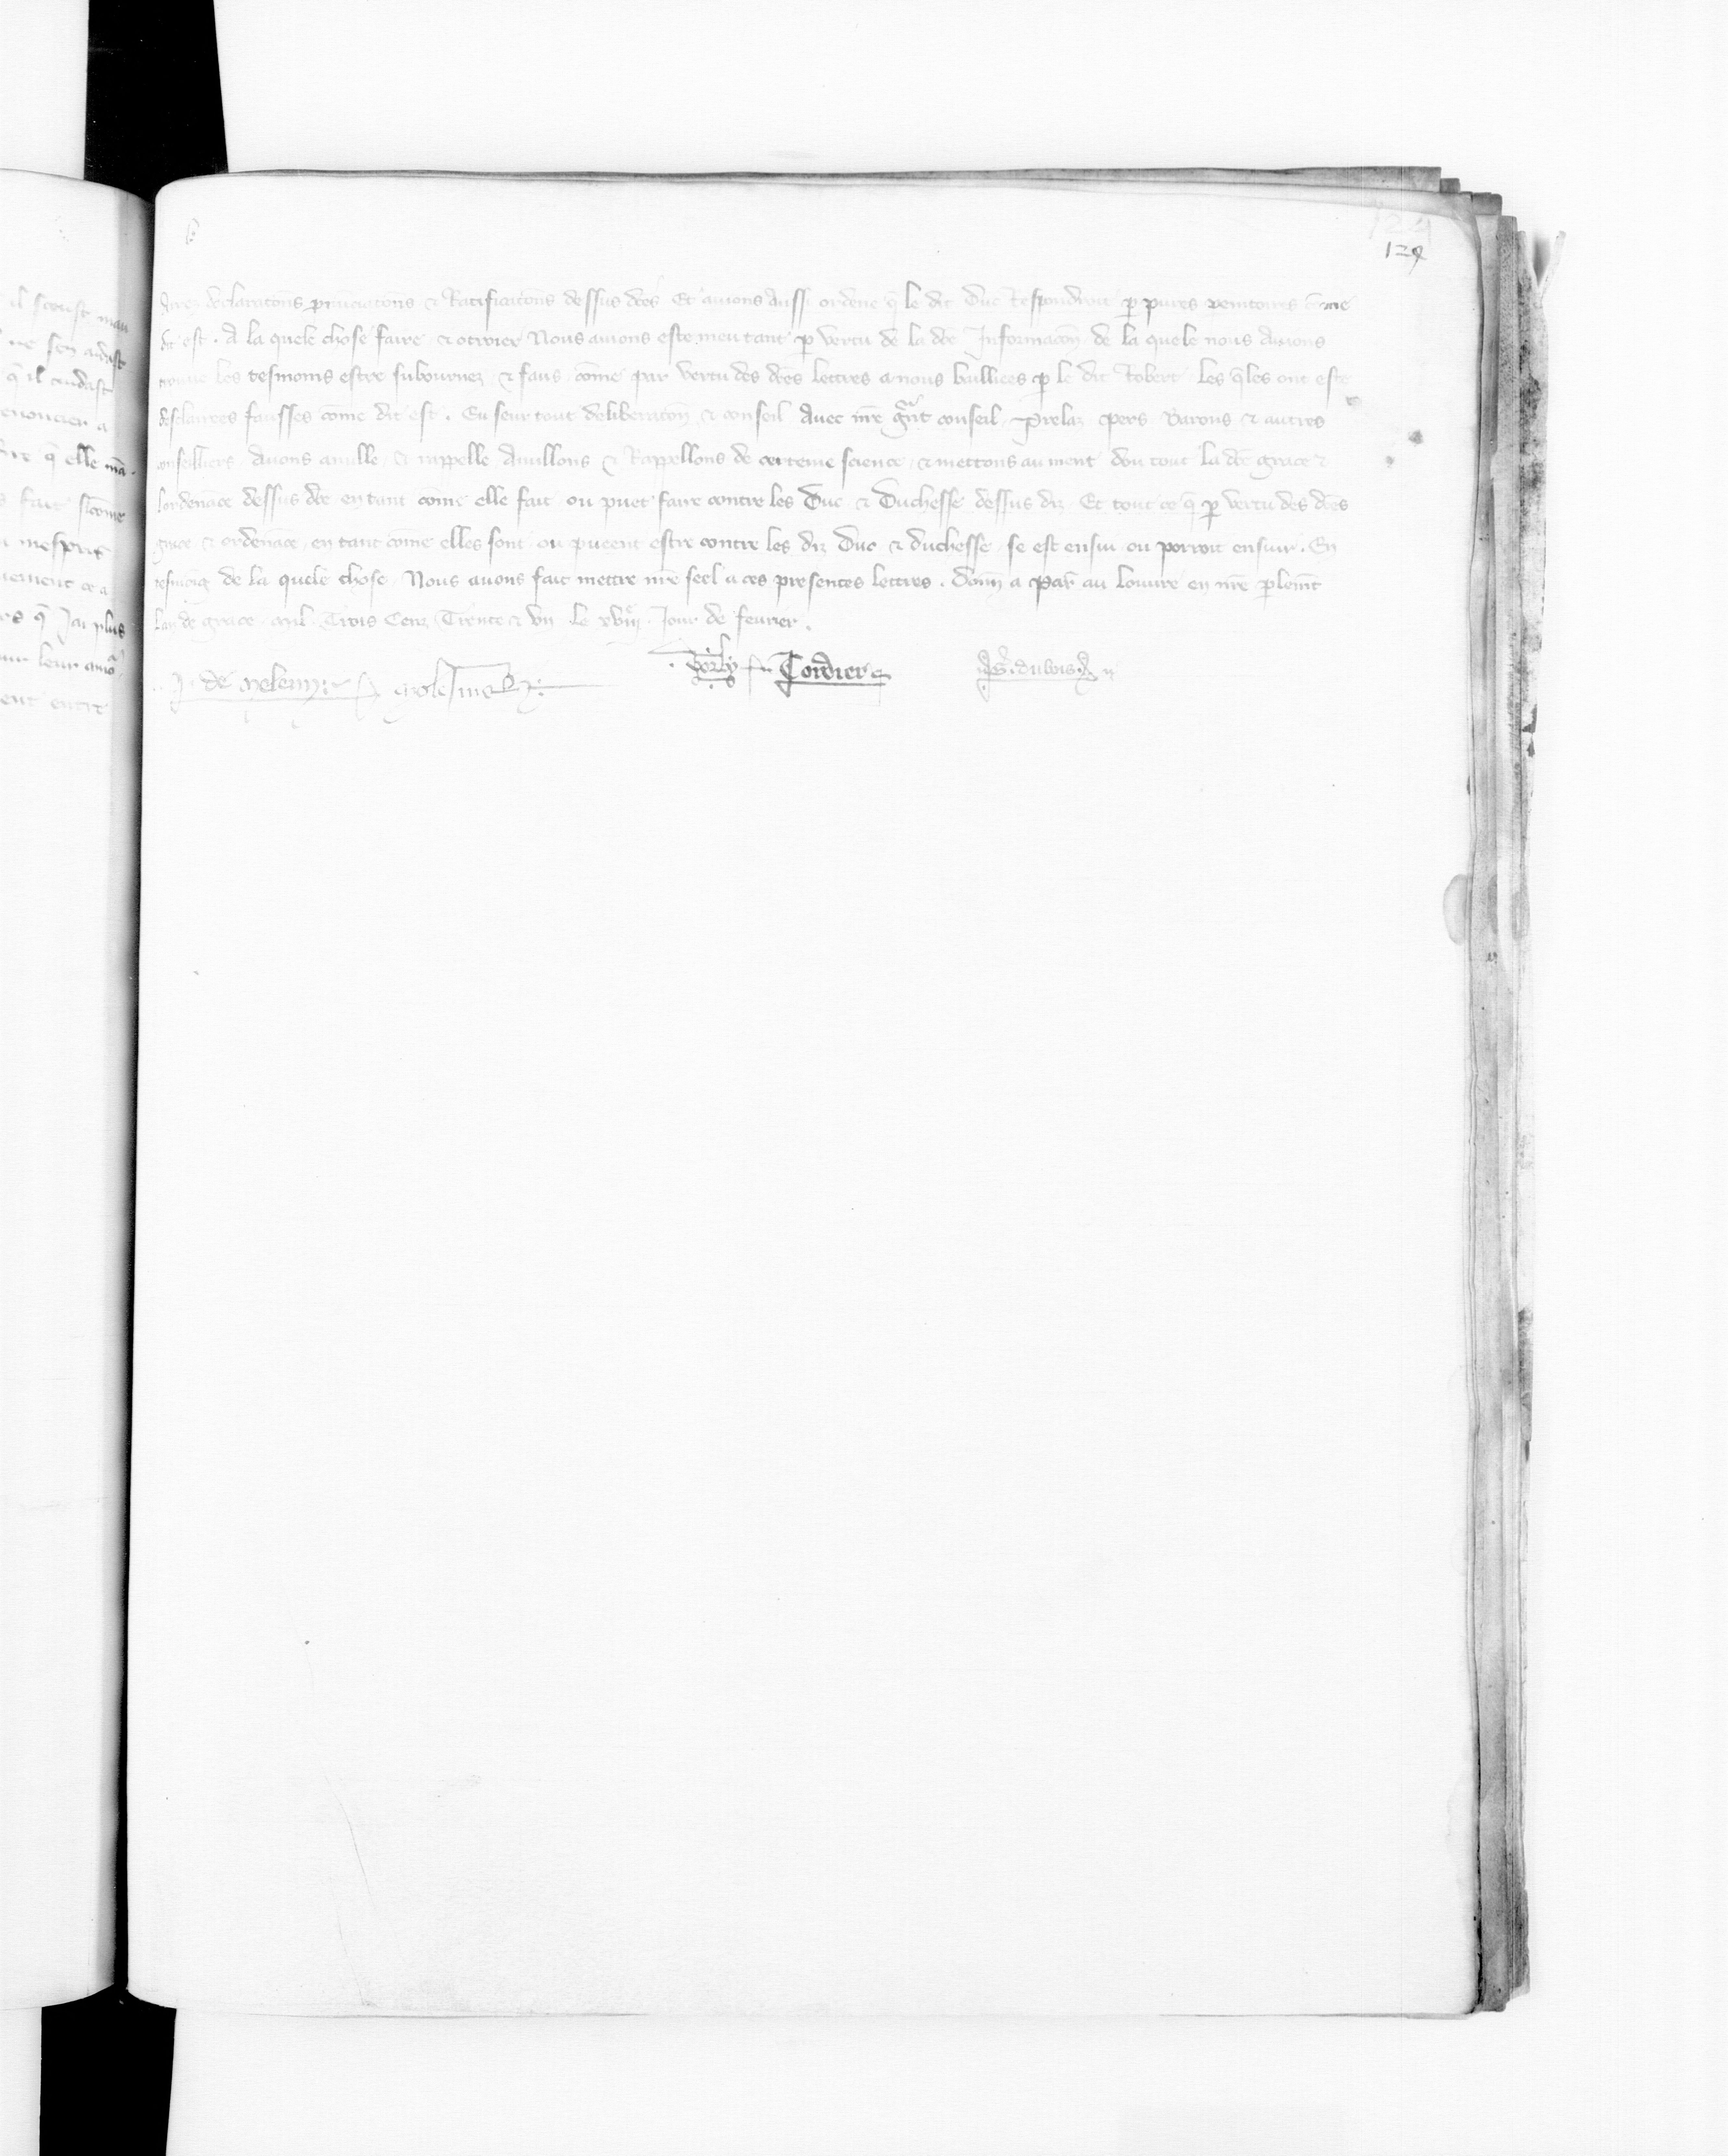 129
declarations pronunciations & Ratifications dessus dces Et avions Aussi ordene q̄ le dit Duc Respondroit p̱ pures
dit est. A la quele chose faire & otroier Nous avions este meu tant p̱ vertu de la dce Informacōn de la quele nous Avons
trouue les tesmoins estre subournez & faus cōme par vertu des dces lettres a nous baillees p̱ le dit Robert les q̄les ont este
desclairees fausses cōme dit est. Eu seur tout deliberatōn & conseil Avec nr̄e gr̄nt conseil Prelaz pers Barons & autres
conseilliers Avons anulle & rappelle Anullons & Rappellons de certeine science & mettons au nient dou tout la dce grace &
lordenāce dessus dce en tant cōme elle fait ou puet faire contre les Duc & Duchesse dessus diz Et tout ce q̄ p̱ vertu des dces
grace & ordenāce en tant cōme elles sont ou pueent estre contre les diz Duc & duchesse se est ensui ou porroit ensuir. En
tesmoig de la quele chose Nous avons fait mettre nr̄e seel a ces presentes lettres. Donn̄ a Par̄ au Louvre en nr̄e p̱lem̄t
lan de grace mil Trois Cenz Trente & vn le xviije Jour de feurier.
J. de Meleun Molesmes Cordier dubois
il sceust
ne sen aidast
q̄ il cuidast
renoncier a
q̄ elle
fait
mesprit
ce a
q̄ Jai plus
leur